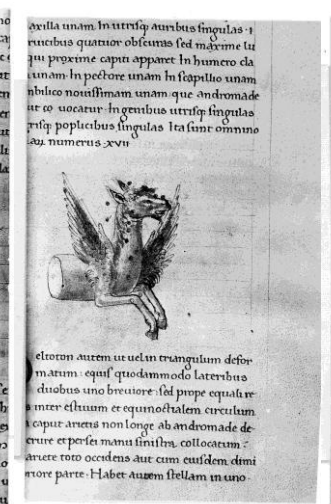 axilla unam. In utrisq; auribus singulas. I
ruicibus quatuor obscuras sed maxime lu
qui proxime caput apparet. In humero cla
unam. In pectore unam. In scapilio unam
nbilico nouissimam unam. que andromade
ut eo uocatur. In genibus utrisq; singulas
risq; poplicibus singulas. Ita sunt omnino
numerus. xvii
eltoton autem ut uel in triangulum defor
matum: equis quodammodo lateribus
duobus uno breuiore: sed prope equali re
s inter estiuum et equinoctialem circulum
caput arietis non longe ab andromade de
crure et persei manu sinistra collocatum:
ariete toto occidens aut cum eiusdem dimi
riore parte. Habet autem stellam in uno